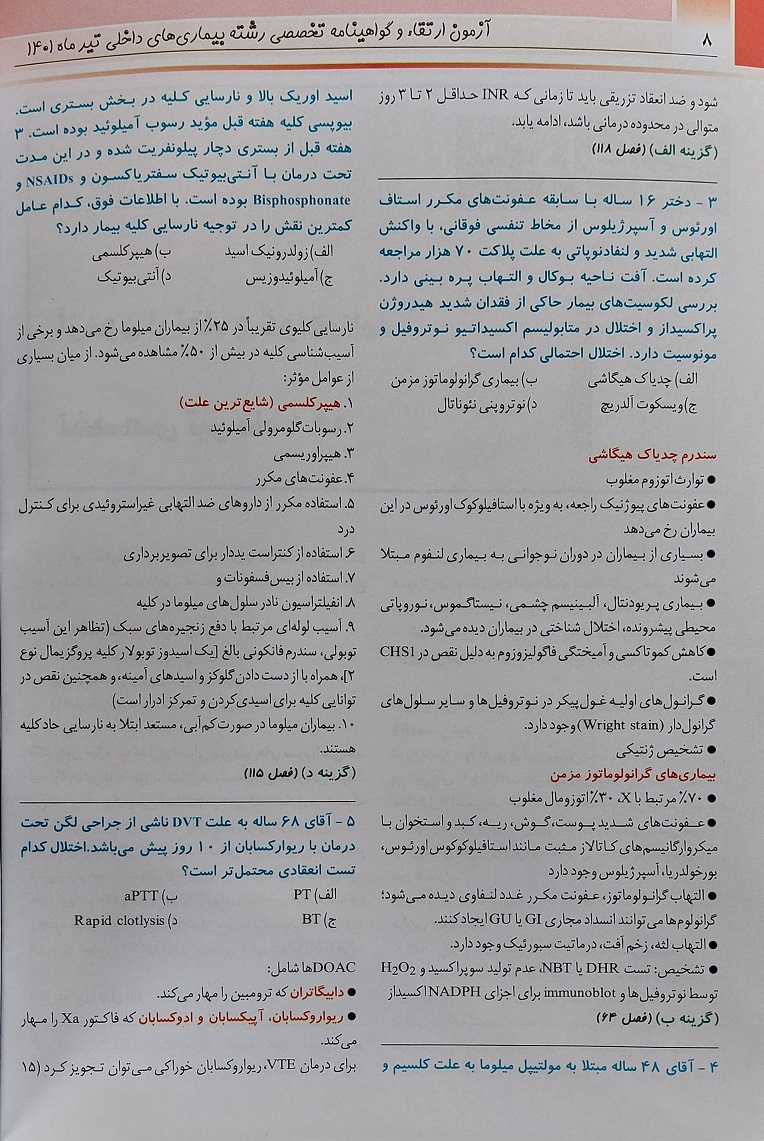 ۸
آزمون ارتقاء و گواهینامه تخصصی رشته بیماری‌های داخلی تیر ماه ۱۴۰۱
شود و ضد انعقاد تزریقی باید تا زمانی که INR حداقل ۲ تا ۳ روز
متوالی در محدوده درمانی باشد، ادامه یابد.
(گزینه الف) (فصل ۱۱۸)
۳ - دختر ۱۶ ساله با سابقه عفونت‌های مکرر استاف
اورئوس و آسپرژیلوس از مخاط تنفسی فوقانی، با واکنش
التهابی شدید و لنفادنوپاتی به علت پلاکت ۷۰ هزار مراجعه
کرده است. آفت ناحیه بوکال و التهاب پره بینی دارد.
بررسی لکوسیت‌های بیمار حاکی از فقدان شدید هیدروژن
پراکسیداز و اختلال در متابولیسم اکسیداتیو نوتروفیل و
مونوسیت دارد. اختلال احتمالی کدام است؟
الف) چدیاک هیگاشی ب) بیماری گرانولوماتوز مزمن
ج) ویسکوت آلدریچ د) نوتروپنی نئوناتال
سندرم چدیاک هیگاشی
● توارث اتوزوم مغلوب
● عفونت‌های پیوژنیک راجعه، به ویژه با استافیلوکوک اورئوس در این
بیماران رخ می‌دهد
● بسیاری از بیماران در دوران نوجوانی به بیماری لنفوم مبتلا
می‌شوند
● بیماری پریودنتال، آلبینیسم چشمی، نیستاگموس، نوروپاتی
محیطی پیشرونده، اختلال شناختی در بیماران دیده می‌شود.
● کاهش کموتاکسی و آمیختگی فاگولیزوزوم به دلیل نقص در CHS1
است.
● گرانول‌های اولیه غول‌پیکر در نوتروفیل‌ها و سایر سلول‌های
گرانول‌دار (Wright stain) وجود دارد.
● تشخیص ژنتیکی
بیماری‌های گرانولوماتوز مزمن
● ۷۰٪ مرتبط با X، ۳۰٪ اتوزومال مغلوب
● عفونت‌های شدید پوست، گوش، ریه، کبد و استخوان با
میکروارگانیسم‌های کاتالاز مثبت مانند استافیلوکوکوس اورئوس،
بورخولدریا، آسپرژیلوس وجود دارد
● التهاب گرانولوماتوز، عفونت مکرر غدد لنفاوی دیده می‌شود؛
گرانولوم‌ها می‌توانند انسداد مجاری GI یا GU ایجاد کنند.
● التهاب لثه، زخم آفت، درماتیت سبورئیک وجود دارد.
● تشخیص: تست DHR یا NBT، عدم تولید سوپراکسید و H2O2
توسط نوتروفیل‌ها و immunoblot برای اجزای NADPH اکسیداز
(گزینه ب) (فصل ۶۴)
۴ - آقای ۴۸ ساله مبتلا به مولتیپل میلوما به علت کلسیم و
اسید اوریک بالا و نارسایی کلیه در بخش بستری است.
بیوپسی کلیه هفته قبل مؤید رسوب آمیلوئید بوده است. ۳
هفته قبل از بستری دچار پیلونفریت شده و در این مدت
تحت درمان با آنتی‌بیوتیک سفتریاکسون و NSAIDs و
Bisphosphonate بوده است. با اطلاعات فوق، کدام عامل
کمترین نقش را در توجیه نارسایی کلیه بیمار دارد؟
الف) زولدرونیک اسید ب) هیپرکلسمی
ج) آمیلوئیدوزیس د) آنتی‌بیوتیک
نارسایی کلیوی تقریباً در ۲۵٪ از بیماران میلوما رخ می‌دهد و برخی از
آسیب‌شناسی کلیه در بیش از ۵۰٪ مشاهده می‌شود. از میان بسیاری
از عوامل مؤثر:
۱. هیپرکلسمی (شایع ترین علت)
۲. رسوبات گلومرولی آمیلوئید
۳. هیپراوریسمی
۴. عفونت‌های مکرر
۵. استفاده مکرر از داروهای ضد التهابی غیراستروئیدی برای کنترل
درد
۶. استفاده از کنتراست یددار برای تصویربرداری
۷. استفاده از بیس‌فسفونات و
۸. انفیلتراسیون نادر سلول‌های میلوما در کلیه
۹. آسیب لوله‌ای مرتبط با دفع زنجیره‌های سبک (تظاهر این آسیب
توبولی، سندرم فانکونی بالغ [یک اسیدوز توبولار کلیه پروگزیمال نوع
۲]، همراه با از دست دادن گلوکز و اسیدهای آمینه، و همچنین نقص در
توانایی کلیه برای اسیدی کردن و تمرکز ادرار است)
۱۰. بیماران میلوما در صورت کم‌آبی، مستعد ابتلا به نارسایی حاد کلیه
هستند.
(گزینه د) (فصل ۱۱۵)
۵ - آقای ۶۸ ساله به علت DVT ناشی از جراحی لگن تحت
درمان با ریوارکسابان از ۱۰ روز پیش می‌باشد.اختلال کدام
تست انعقادی محتمل‌تر است؟
الف) PT ب) aPTT
ج) BT د) Rapid clotlysis
DOACها شامل:
● دابیگاتران که ترومبین را مهار می‌کند.
● ریواروکسابان، آپیکسابان و ادوکسابان که فاکتور Xa را مهار
می‌کند.
برای درمان VTE، ریواروکسابان خوراکی می‌توان تجویز کرد (۱۵